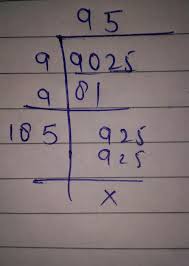 95
9 9025
9 81
185 925
925
x